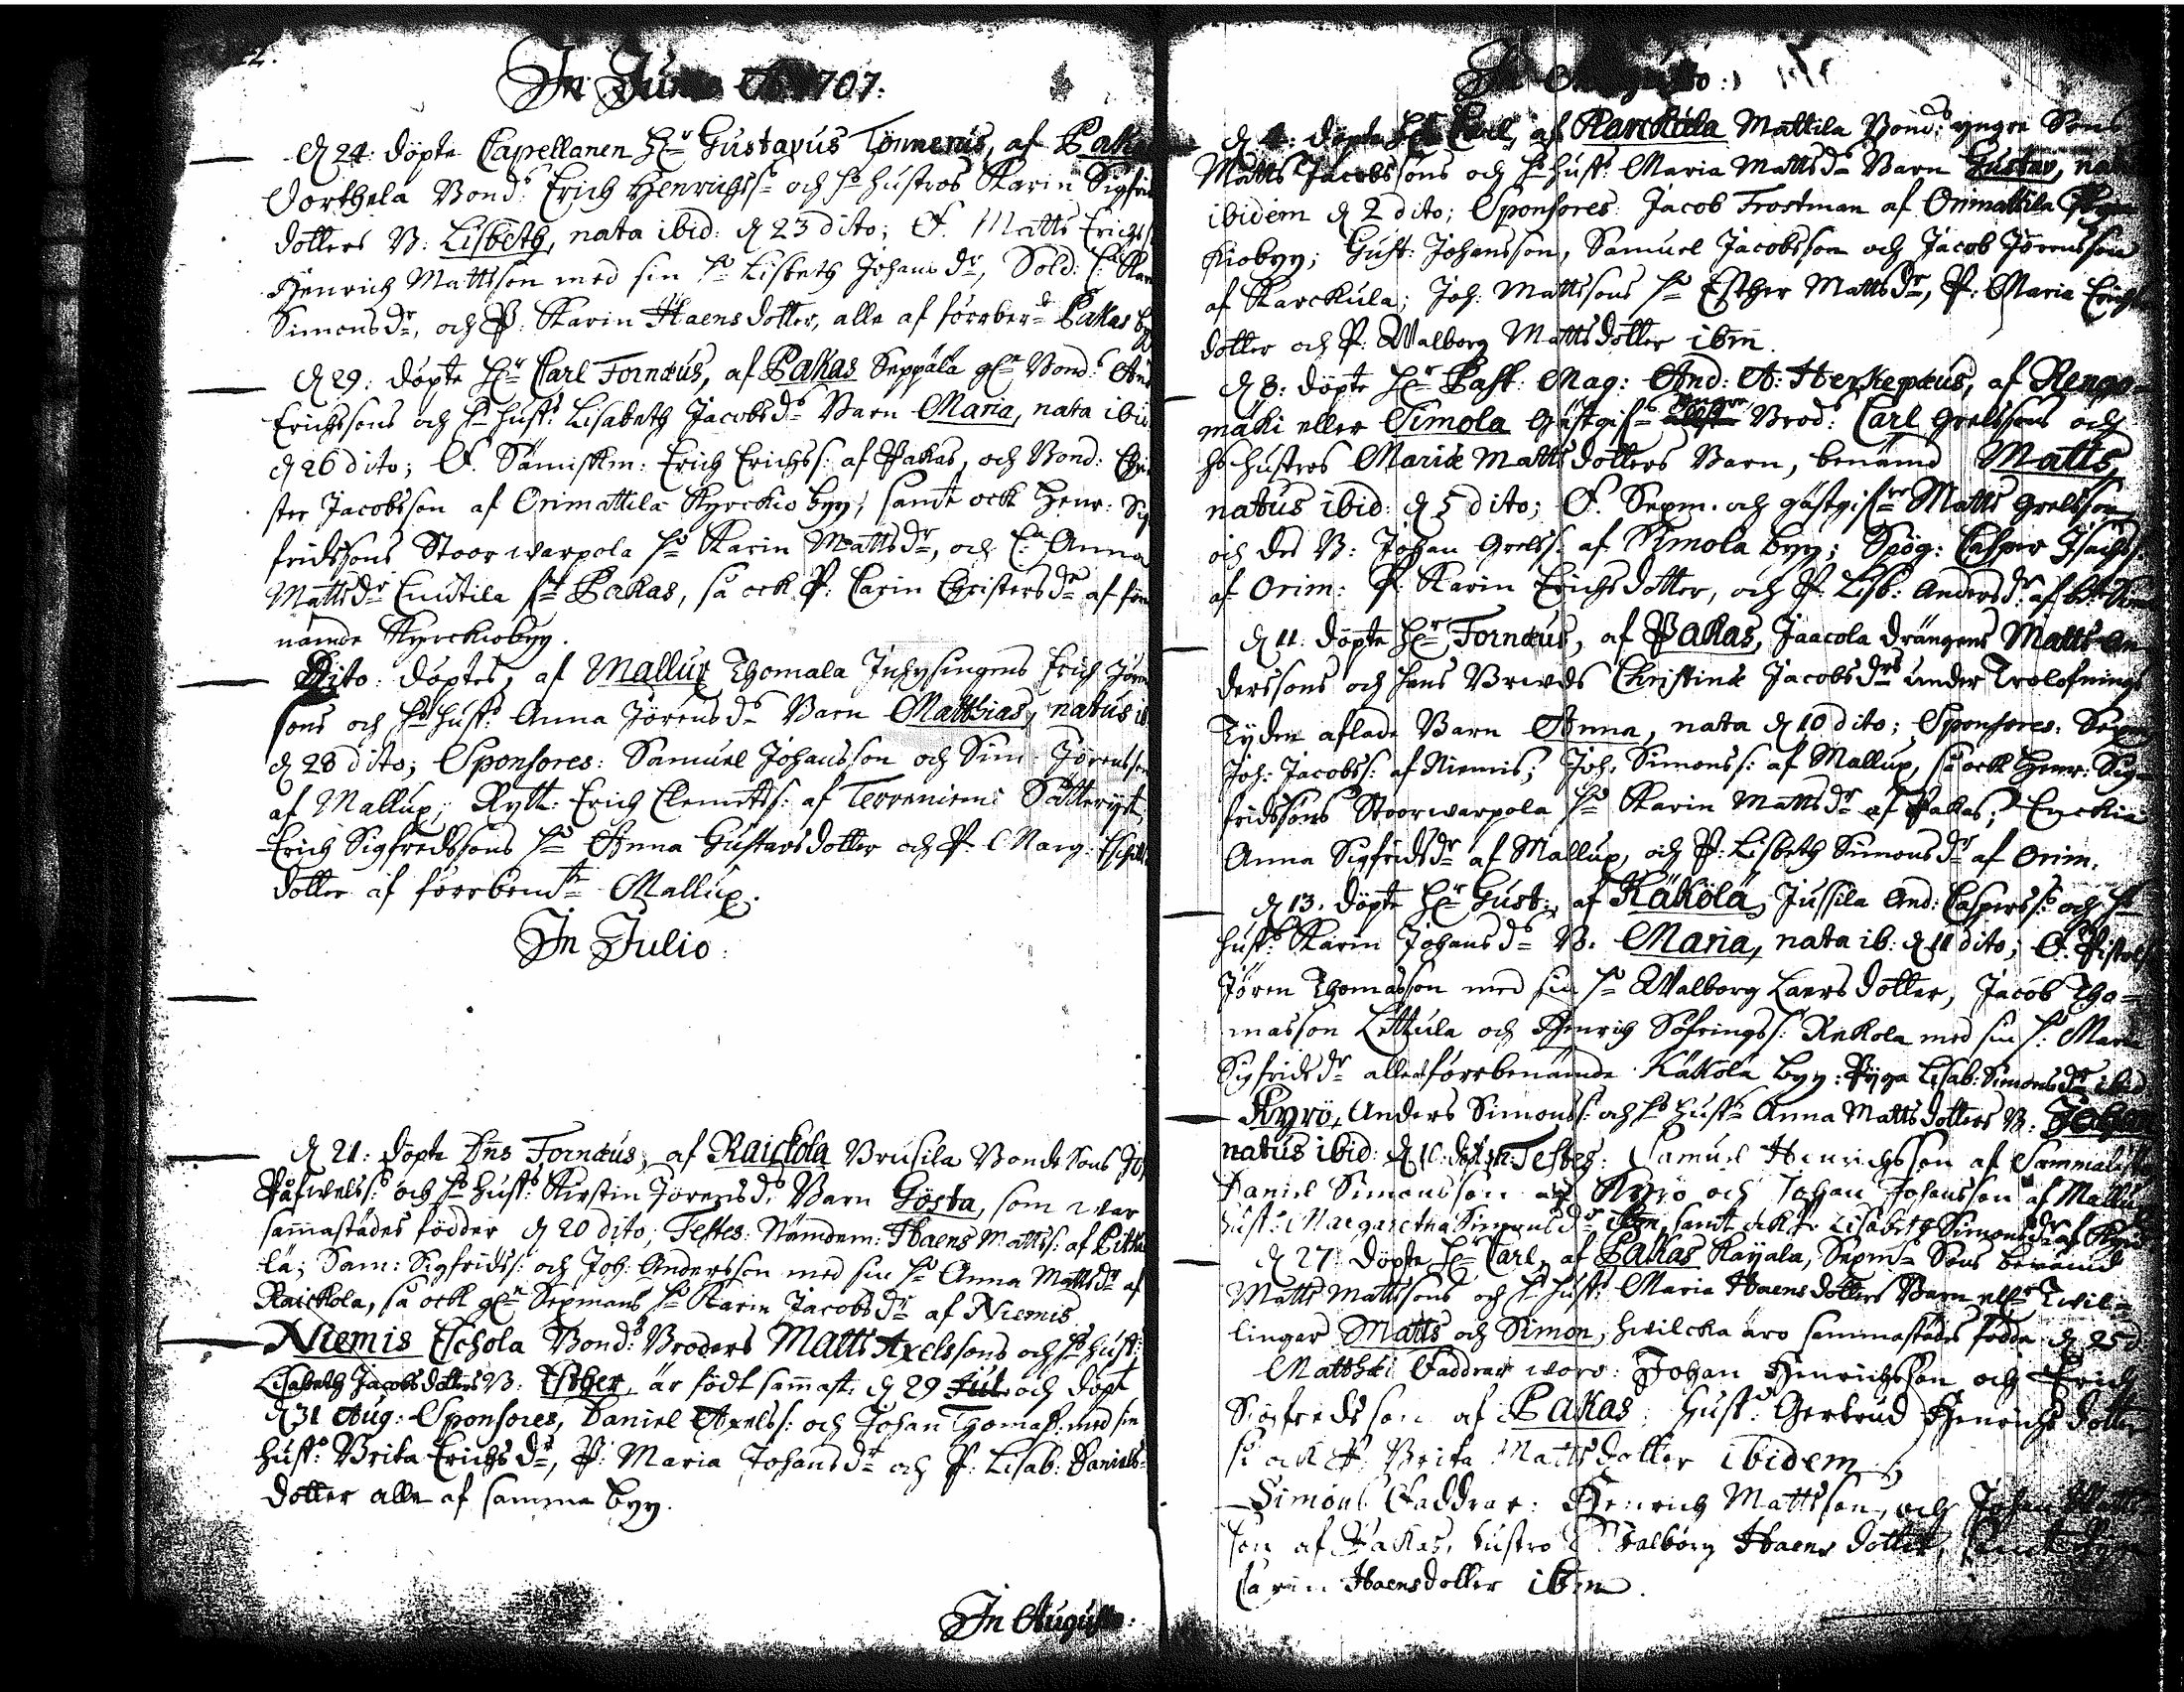 2.
In Junio Ao 1707:
d 24: döpte Capellanen Hr Gustavus Tönnerus, af Pakas
Vorthela Bond: Erich Henrichss: och hs hustros Karin Sigfrids
dotters B: Lisbeth, nata ibid: d 23 dito; F. Matts Erichss
Henrich Mattsson med sin h: Lisbeth Johans dr, Sold: h: Karin
Simonsdr, och P: Karin Haens dotter, alla af förrber:de Pakas by
d 29: döpte Hr Carl Fornæus, af Pakas Seppälä Bond:
Erichssons och hs hust: Lisabeth Jacobsd: Barn Maria, nata ibid
d 26 dito; F. Erich Erichss: af Pakas, och Bond: Chri
ster Jacobsson af Orimattila Kyrckio byy; samt ock Henr: Sig
fridssons Stoor warpola h: Karin Mattsdr, och Anna
Mattsdr Eustila Pakas, så ock P: Carin Christersdr af för
nämde Kyrckiobyy.
Dito: döptes, af Mallup Thomala Inhysingens Erich Jörens
sons och hs hust: Anna Jörens d: Barn Matthias, natus ib
d 28 dito; Sponsores: Samuel Johansson och Sim: Jörensson
af Mallup; Rytt: Erich Clemets: af Terreniemi
Erich Sigfredssons h: Anna Gustavsdotter och P. Marg:
dotter af förrbemte Mallup.
In Julio:
d 21: döpte Dns Fornæus, af Raickola Brusila Bonde Sons Joh
Påfwels: och hs hust: Kirstin Jörensd: Barn Gösta, som war
sammastädes födder d 20 dito; Testes: Nämdem: Haens Matts: af
lä; Sam: Sigfrids: och Joh: Andersson med sin h: Anna Mattsdr af
Raickola, så ock Sexmans h: Karin Jacobsdr af Niemis
Niemis Eschola Bond: Broders Matts Axelssons och hs hust:
Lisabeth Jacobsdotters B: Esther, är födt sammast. d 29 Jul: och döpt
d 31 Aug: Sponsores, Daniel Axelss: och Johan Thomass: med sin
hust: Brita Erichsdr, P: Maria Johansdr och P: Lisab: Daniels
dotter alla af samma byy.
In Augusto:
In Augusto:
d 4: döpte Hr Carl, af Karckula Mattila Bond: yngre Sons
Matts Jacobssons och hs hust: Maria Matts d: Barn Gustav, natus
ibidem d 2 dito; Sponsores: Jacob Frostman af Orimattila Kyrc
kiobyy; Gust: Johansson, Samuel Jacobsson och Jacob Jörensson
af Karckula; Joh: Mattssons h: Esther Mattsdr, P: Maria Erichs
dotter och P: Walborg Mattsdotter ibm.
d 8: döpte Hr Past: Mag: And: A: Herkepæus, af Rengo
mäki eller Simola Gästgif: yngre Brod: Carl Grelssons och
hs hustros Mariæ Matts dotters Barn, benämd Matts,
natus ibid: d 5 dito; F. Sexm: och gästgif:ren Matts Grelsson,
och des B: Johan Grelss: af Simola byy; Casper Isachs:
af Orim: P. Karin Erichsdotter, och P. Lisb: Andersdr: af
d 11: döpte Hr Fornæus, af Pakas, Jaacola drängens Matts An
derssons och hans Bruds Christinæ Jacobsdrs under Trolofnings
Tijden aflade Barn Anna, nata d 10 dito; Sponsores: Sexm
Joh: Jacobss: af Niemis; Joh. Simonss: af Mallup, så ock Henr: Sig
fridssons Stoorwarpola h: Karin Mattsdr af Pakas; Enckia
Anna Sigfridsdr af Mallup, och P: Lisbeth Simonsdr af Orim.
d 13. döpte Hr Gust:, af Käkölä, Jussila And: Caspers: och hs
hust: Karin Johans d: B: Maria, nata ib: d 11 dito; F.
Jören Thomasson med sin h: Walborg Laersdotter, Jacob Tho
masson Littula och Henrich Söfrings: Rekola med sin h: Maria
Sigfridsdr alle af förrbenämde Käkölä byy: Pyga Lisab: Simonsdr ibid
Kyrö, Anders Simonss: och hs hust: Anna Matts dotters B: Johan
natus ibid: d Testes: Samuel Henrichsson af Sammalisto
Daniel Simonsson af Kyrö och Johan Johansson af Mallup
hust: Margaretha Simonsdr ibm, samt Lisabeth Simonsdr af Kyrö
d 27: döpte Hr Carl, af Pakas Kayala, Sexm: Sons benämd
Matts Mattssons och hs hust: Maria Haens dotters Barn eller Twil
lingar Matts och Simon, hwilcka äro sammastädes födda d 25 d
Matthæi Faddrar woro: Johan Henrichsson och Erich
Sigfredsson af Pakas: hust: Gertrud Henrichsdotter
så ock P: Brita Mattsdotter ibidem
Simons Faddrar: Henrich Mattsson, och Johan Matts
son af Pakas, hustro Walborg Haens dotter, samt Pyga
Carin Haensdotter ibm.